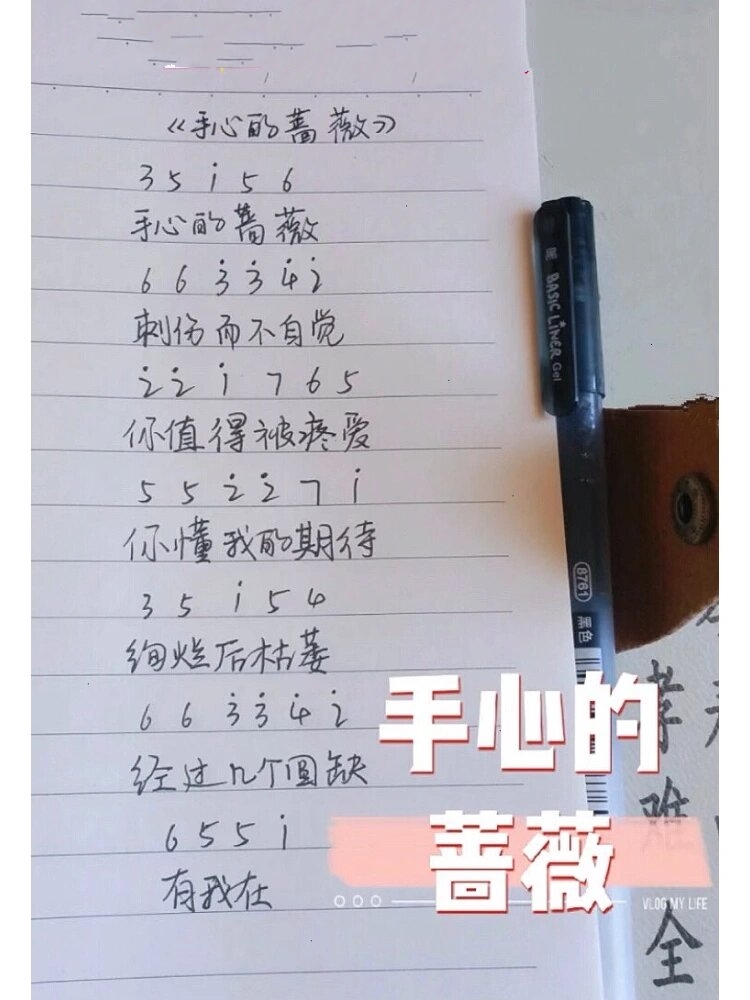 《手心的蔷薇》
3 5 i 5 6
手心的蔷薇
6 6 3̇ 3̇ 4̇ 2̇
刺伤而不自觉
2̇ 2̇ i 7 6 5
你值得被疼爱
5 5 2̇ 2̇ 7 i
你懂我的期待
3 5 i 5 4
绚烂后枯萎
6 6 3̇ 3̇ 4̇ 2̇
经过几个圆缺
6 5 5 i
有我在
BASIC LINER Gel
8761 黑色
手心的
蔷薇
VLOG MY LIFE
难
全